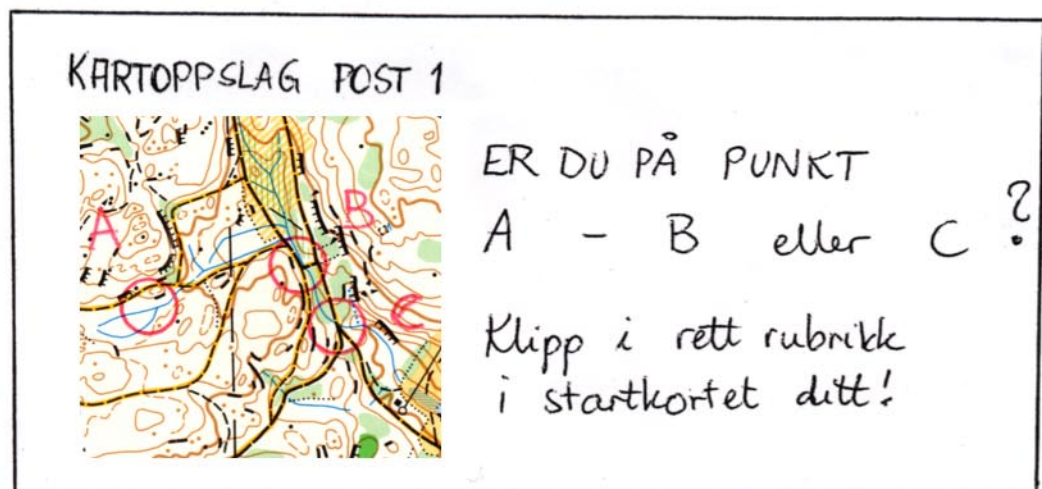 KARTOPPSLAG POST 1
A
B
C
ER DU PÅ PUNKT
A - B eller C ?
Klipp i rett rubrikk
i startkortet ditt!